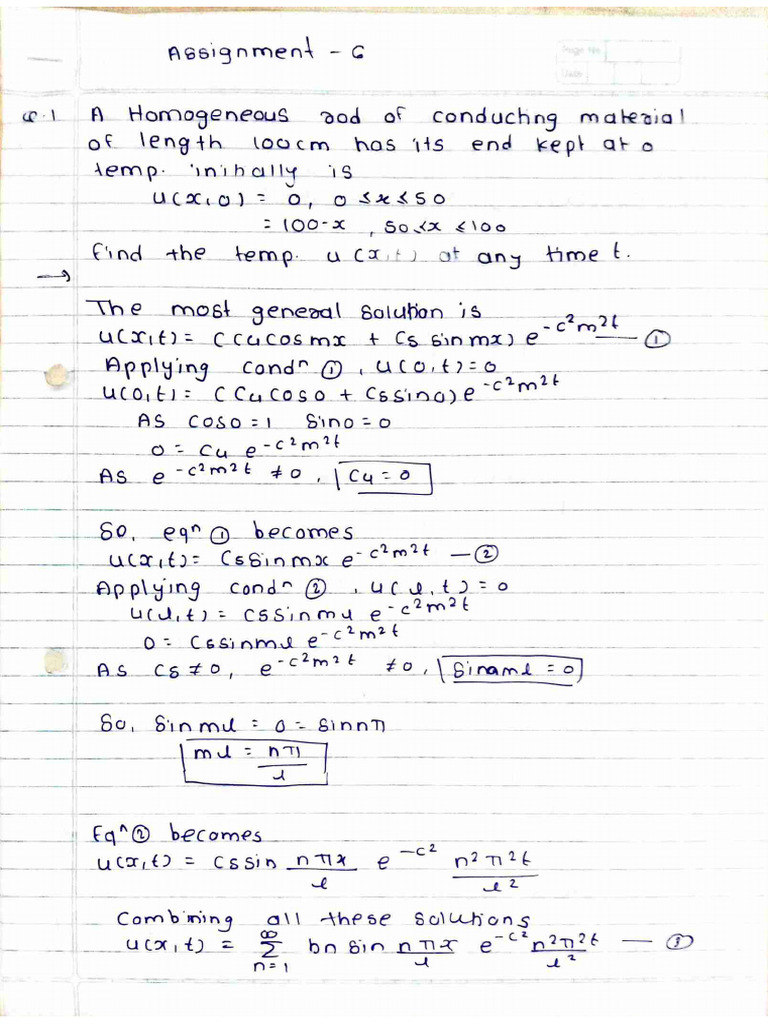 Assignment - 6
Page No.
Date
Q.1 A Homogeneous rod of conducting material
of length 100cm has its end kept at 0
temp. initially is
u(x,0) = 0, 0 ≤ x ≤ 50
= 100-x , 50 ≤ x ≤ 100
find the temp. u(x,t) at any time t.
→
The most general solution is
u(x,t) = (C4 cos mx + C5 sin mx) e^-c²m²t — ①
Applying condⁿ ①, u(0,t) = 0
u(0,t) = (C4 cos0 + C5 sin0) e^-c²m²t
As cos0 = 1 sin0 = 0
0 = C4 e^-c²m²t
As e^-c²m²t ≠ 0, C4 = 0
So, eqⁿ ① becomes
u(x,t) = C5 sin mx e^-c²m²t — ②
Applying condⁿ ②, u(l,t) = 0
u(l,t) = C5 sin ml e^-c²m²t
0 = C5 sin ml e^-c²m²t
As C5 ≠ 0, e^-c²m²t ≠ 0, Sin ml = 0
So, Sin ml = 0 = sin nπ
ml = nπ/l
Eqⁿ ② becomes
u(x,t) = C5 sin nπx/l e^-c² n²π²t/l²
Combining all these solutions
u(x,t) = ∞Σn=1 bn sin nπx/l e^-c² n²π²t/l² — ③